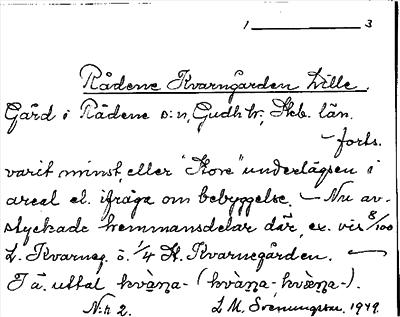 1 ——— 3
Rådene Kvarngården Lille.
Gård i Rådene s:n, Gudh. hd, Skb. län.
— forts.
varit minst, eller "Store" underlägsen i
areal el. ifråga om bebyggelse. — Nu av-
styckade hemmansdelar där, ex. vis 8/100
L. Kvarneg. o. 1/4 St. Kvarnegården. —
I ä. uttal kvàṇa- (kvàṇa- kvæ̀ṇa-).
N:r 2. L M. Svenungsson. 1949.